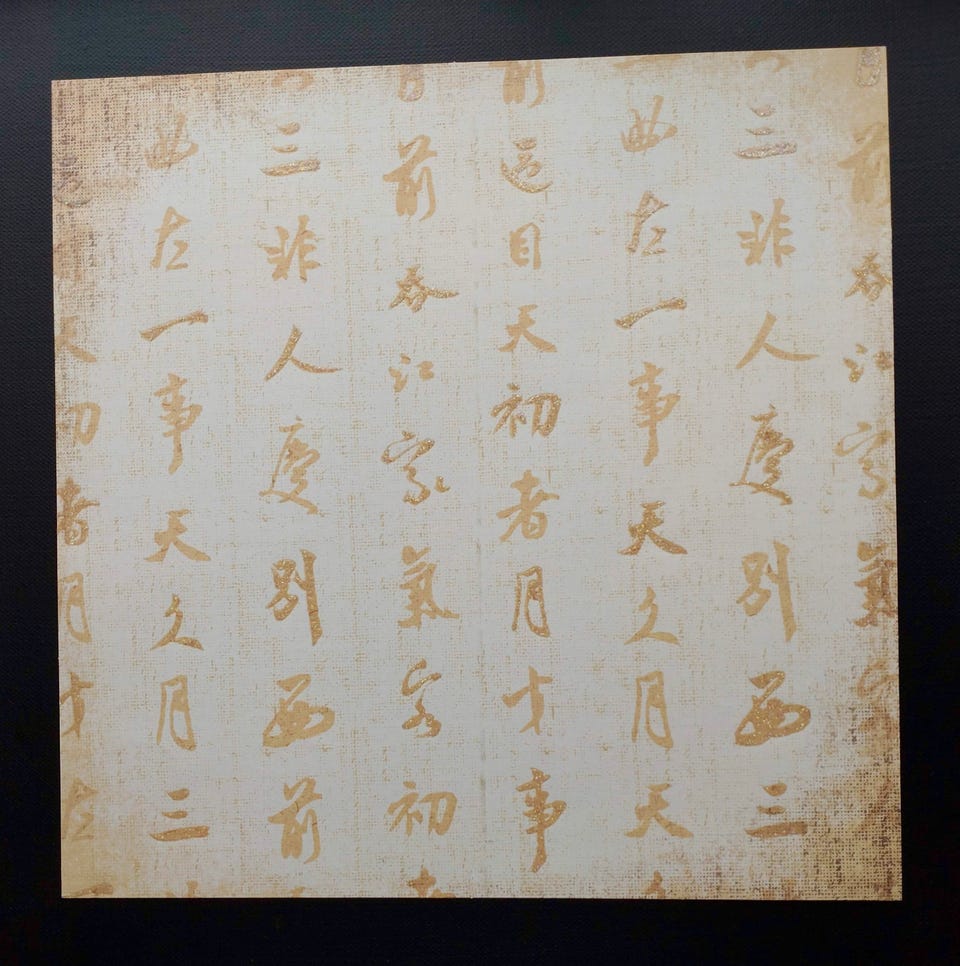 前江家氣
三非人別西三
曲左一事天久月天
前目天初者月才事
前江家氣客初
三非人別西前
曲左一事天久月三
天初者月才左